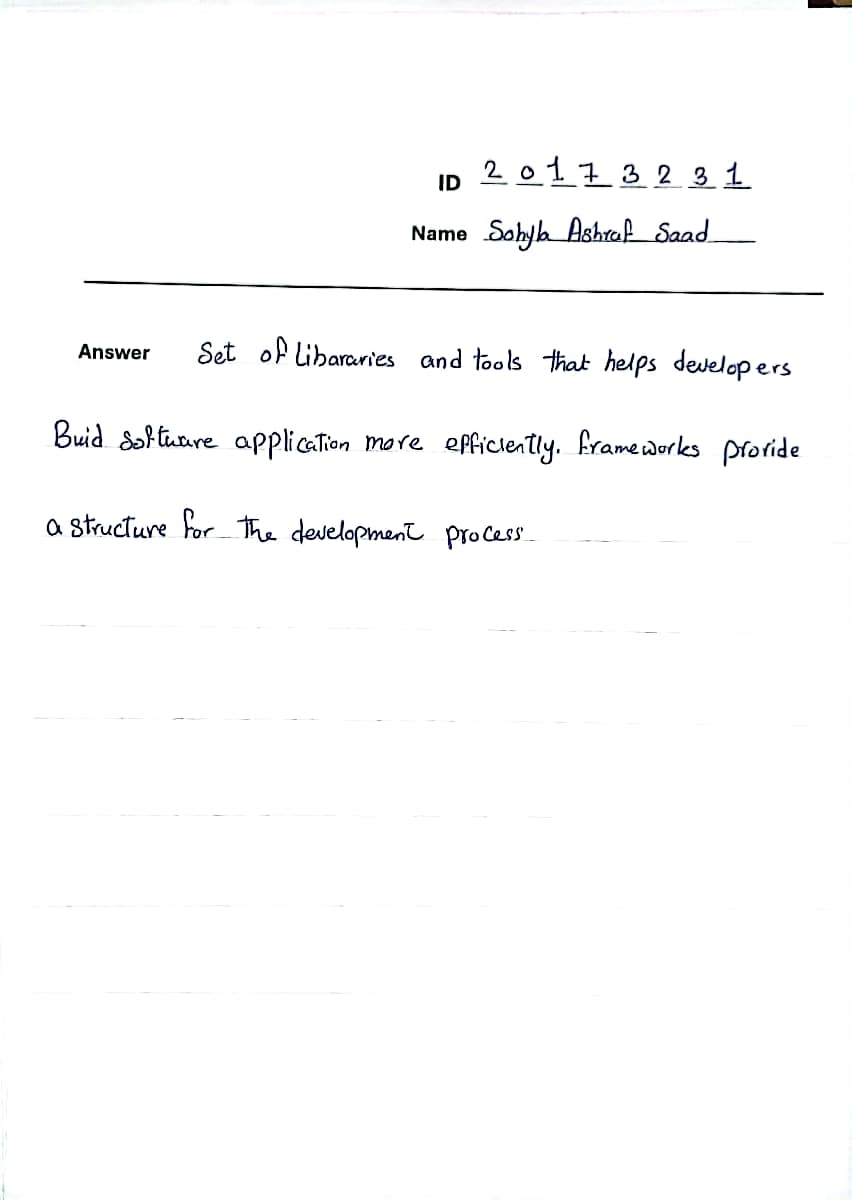 ID 2 0 1 7 3 2 3 1
Name Sohyla Ashraf Saad
Answer Set of Libararies and tools that helps developers
Buid software application more efficiently. frameworks provide
a structure for the development process